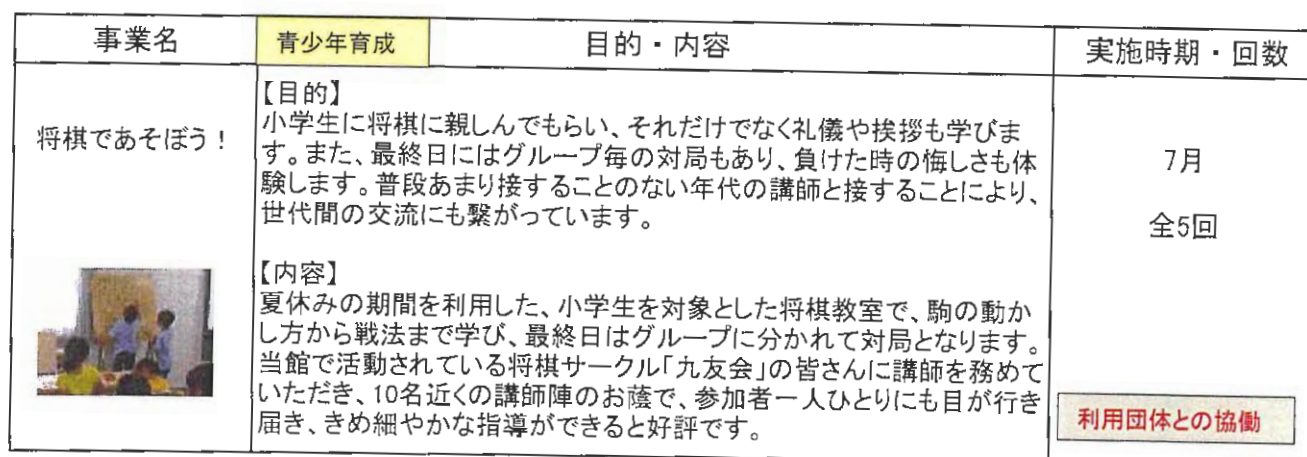 事業名
青少年育成
目的・内容
実施時期・回数
将棋であそぼう！
【目的】
小学生に将棋に親しんでもらい、それだけでなく礼儀や挨拶も学びま
す。また、最終日にはグループ毎の対局もあり、負けた時の悔しさも体
験します。普段あまり接することのない年代の講師と接することにより、
世代間の交流にも繋がっています。
【内容】
夏休みの期間を利用した、小学生を対象とした将棋教室で、駒の動か
し方から戦法まで学び、最終日はグループに分かれて対局となります。
当館で活動されている将棋サークル「九友会」の皆さんに講師を務めて
いただき、10名近くの講師陣のお蔭で、参加者一人ひとりにも目が行き
届き、きめ細やかな指導ができると好評です。
7月
全5回
利用団体との協働